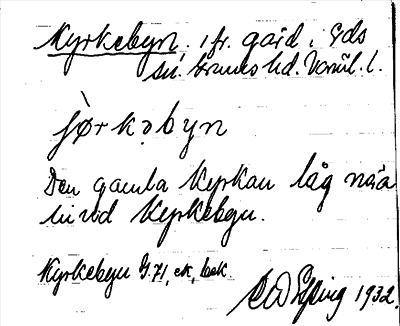 Kyrkebyn, i fr. gård i Eds
sn. Grums hd. Värml. l.
jørkəbyn
Den gamla kyrkan låg nära
invid Kyrkebyn.
Kyrkebyn G. 71, ek, bok
1932.